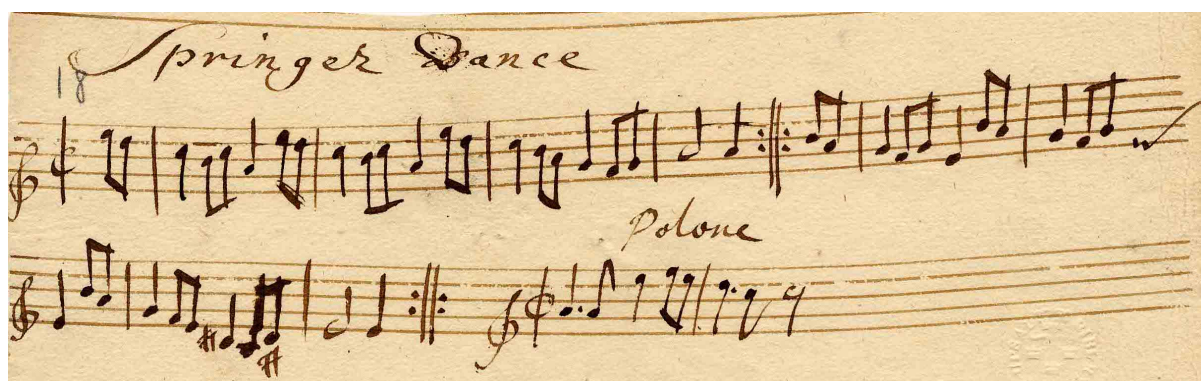 Springer Dance
18
Polone